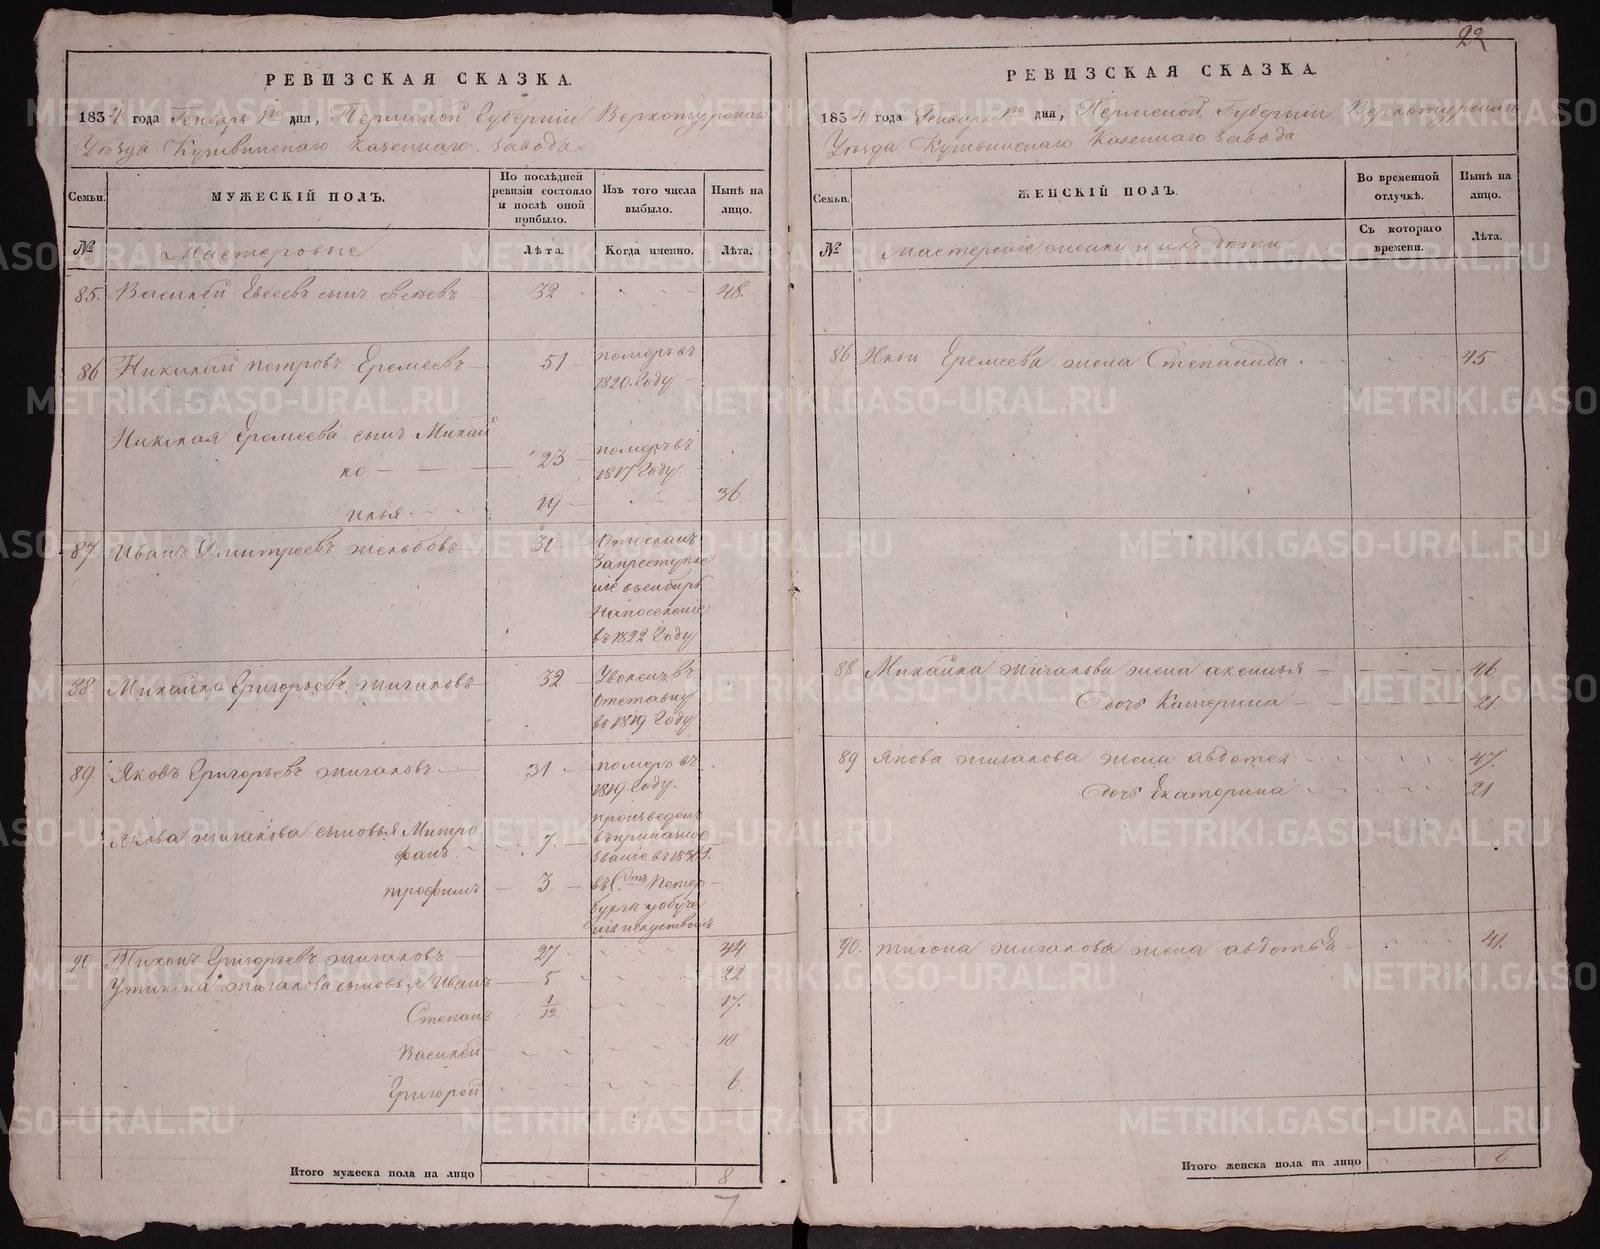 РЕВИЗСКАЯ СКАЗКА.
1834 года Генваря 1го дня, Пермской Губерніи Верхотурскаго
Уѣзда Кушвинскаго Казеннаго завода
Семьи.
МУЖЕСКІЙ ПОЛЪ.
По послѣдней ревизіи состояло и послѣ оной прибыло.
Изъ того числа выбыло.
Нынѣ на лицо.
№
Мастеровые
Лѣта.
Когда именно.
Лѣта.
85. Василей Евсеевъ сынъ 32 48.
86 Николай петровъ Еремеевъ 51 померъ въ
1820. Году
Николая Еремеева сынъ Михай
ло 23 померъ въ
1817 Году
илья 19 36.
87. Иванъ Дмитреевъ желобовъ 30 Отисланъ
За преступле
ніе въ сибирь
На поселеніе
въ 1822 Году
88. Михайло Григорьевъ жигаловъ 32 Уволенъ въ
Отставку
въ 1819 Году
89. Яковъ Григорьевъ жигаловъ 31 померъ въ
1819 Году.
Якова жигалова сыновья Митро
фанъ 7. произведенъ
въ
званіе въ
трофимъ 3 въ С.тъ Петер
бургѣ
90 Тихонъ Григорьевъ жигаловъ 27 44
У тихона жигалова сыновья Иванъ 5 22
Степанъ 1/12 17.
Василей 10
Григорей 6.
Итого мужеска пола на лицо 8
7
22
РЕВИЗСКАЯ СКАЗКА.
1834 года Генваря 1го дня, Пермской Губерніи Верхотурскаго
Уѣзда Кушвинскаго Казеннаго завода
Семьи.
ЖЕНСКІЙ ПОЛЪ.
Во временной отлучкѣ.
Нынѣ на лицо.
№
Мастерскіе женки и ихъ дѣти
Съ котораго времени.
Лѣта.
86 Ильи Еремеева жена Степанида 45
88 Михайла жигалова жена аксинья 46
дочь Катерина 21
89 Якова жигалова жена авдотея 47.
дочь Екатерина 21
90. тихона жигалова жена авдотья 41.
Итого женска пола на лицо 6
METRIKI.GASO-URAL.RU